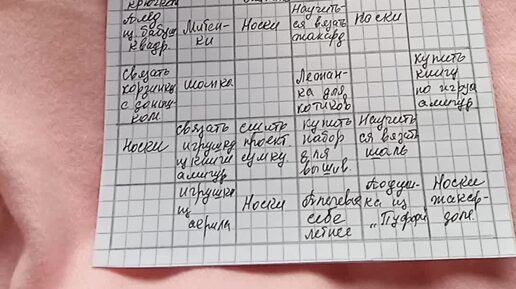 Плед
из бабуш
квадр.
Митен-
ки
Носки
Научить-
ся вязать
жакард
Носки
Связать
корзинку
с доныш-
ком
Лежан-
ка для
котиков
купить
книгу
по
амигур
Носки
связать
игрушку
из книги
амигур
сшить
проект
сумку
купить
набор
для
вышив.
Научить
ся вязать
шаль
игрушка
из
акрила
Носки
себе
летнее
Подуш-
ка из
"Пуффи
Носки
жакар-